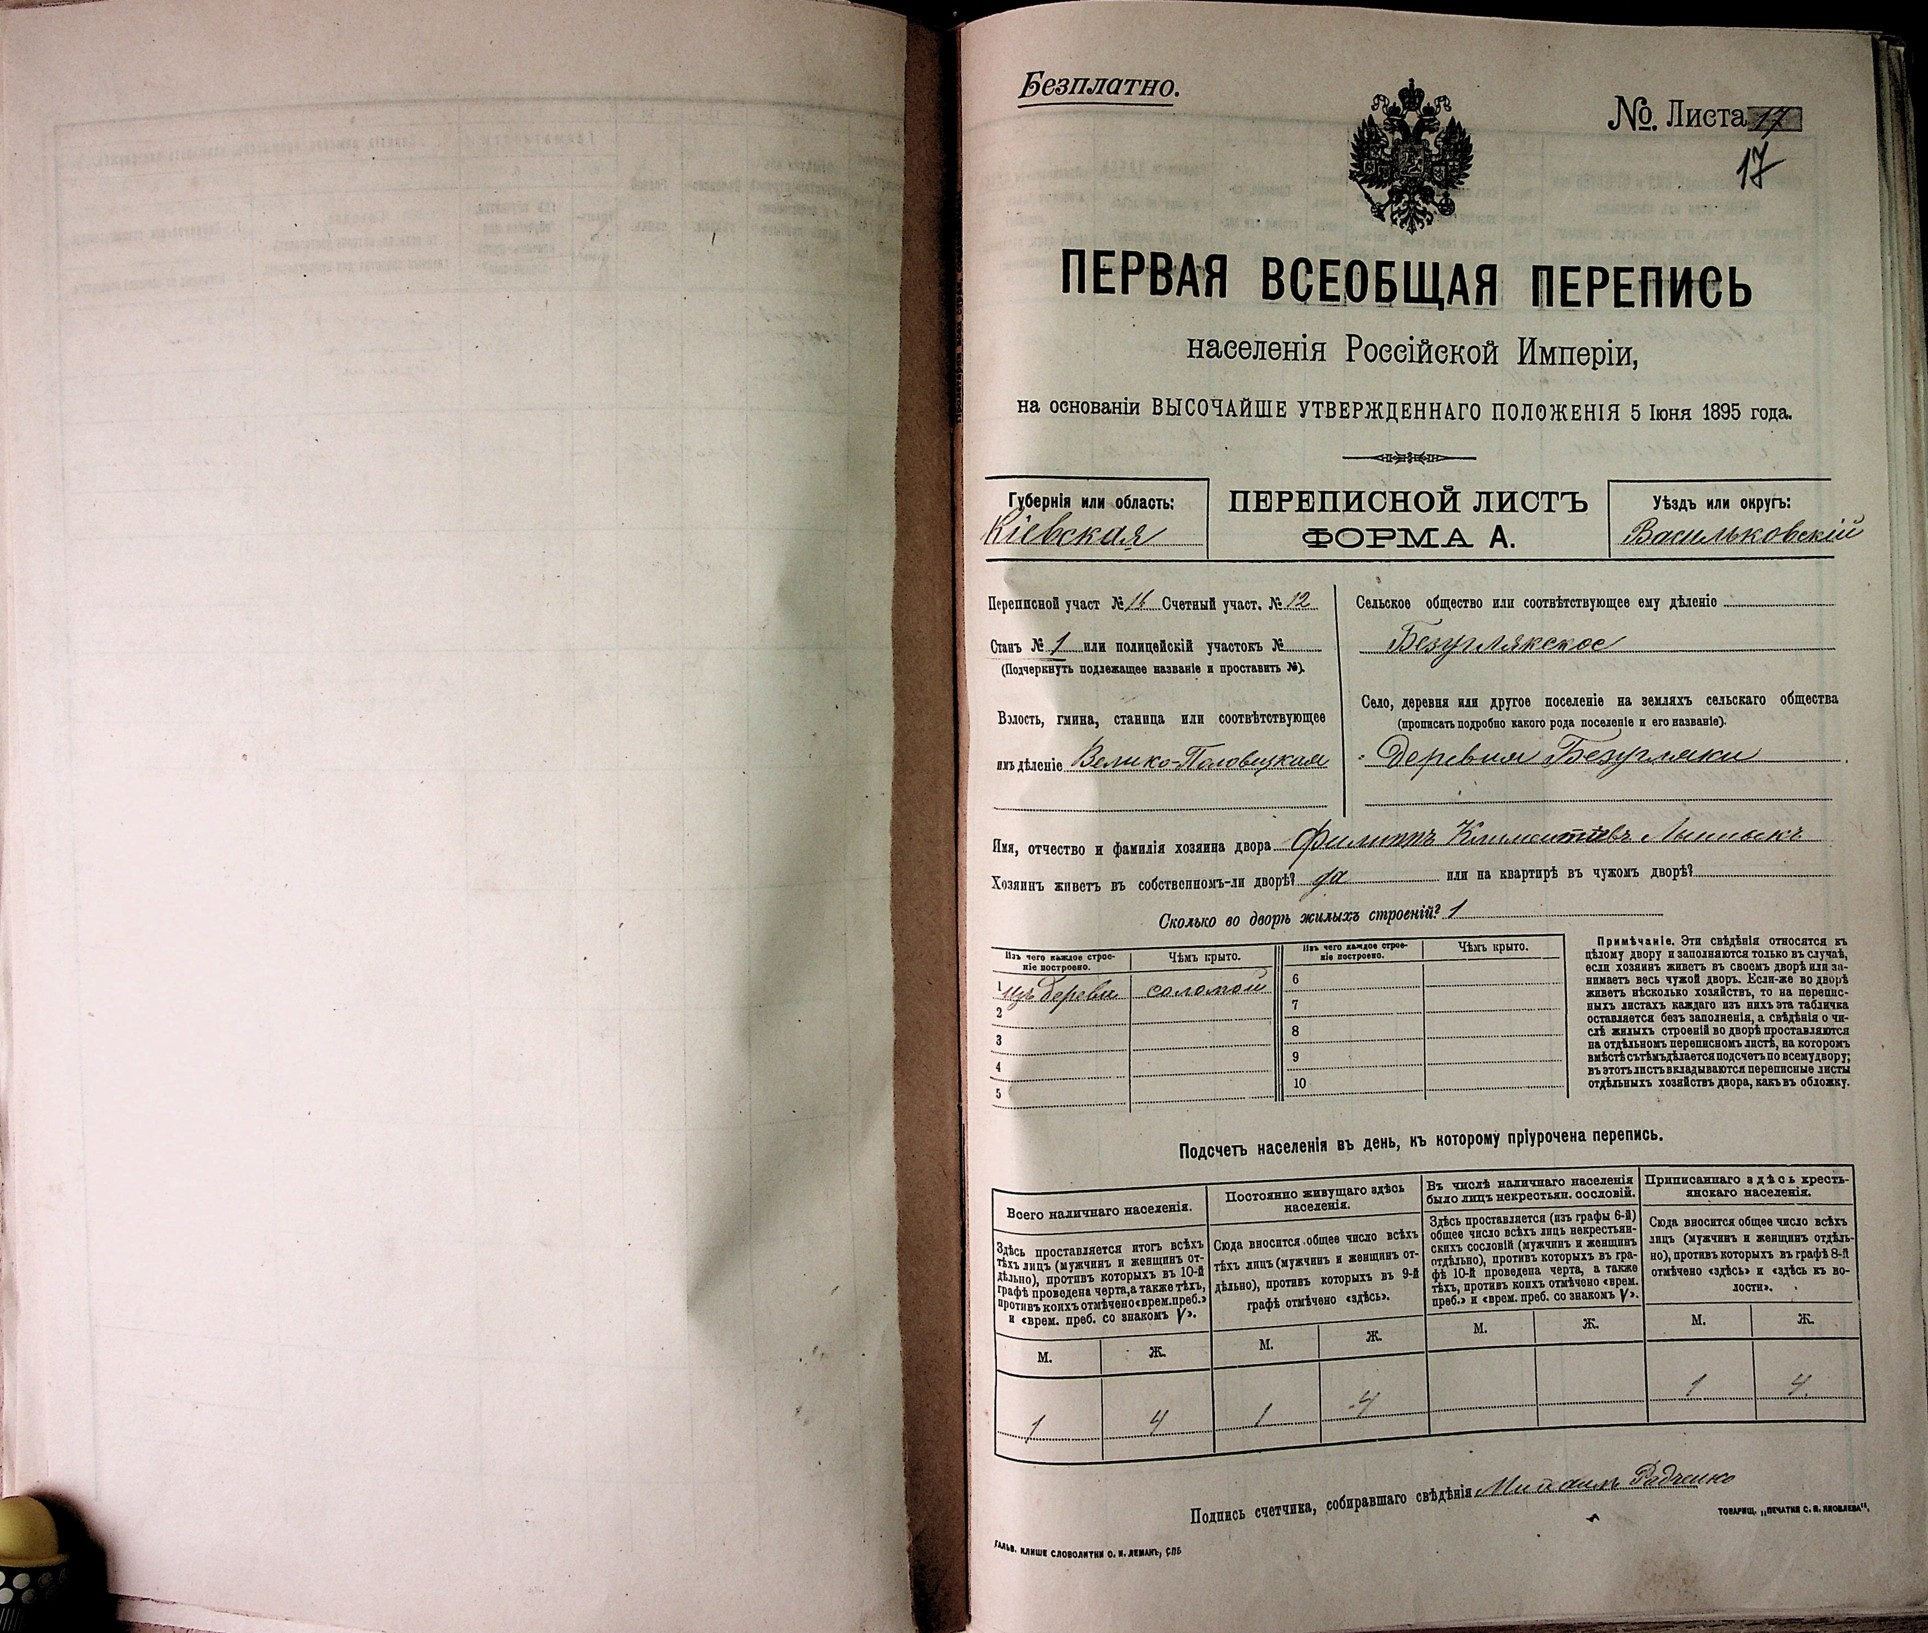 Безплатно.
№. Листа 17
17
ПЕРВАЯ ВСЕОБЩАЯ ПЕРЕПИСЬ
населенія Россійской Имперіи,
на основаніи ВЫСОЧАЙШЕ УТВЕРЖДЕННАГО ПОЛОЖЕНІЯ 5 Іюня 1895 года.
Губернія или область:
Кіевская
ПЕРЕПИСНОЙ ЛИСТЪ
ФОРМА А.
Уѣздъ или округъ:
Васильковскій
Переписной участ № 16 Счетный участ. № 12
Станъ № 1 или полицейскій участокъ №
(Подчеркнуть подлежащее названіе и проставить №).
Волость, гмина, станица или соотвѣтствующее
имъ дѣленіе Велико-Половецкая
Сельское общество или соотвѣтствующее ему дѣленіе
Безуглякское
Село, деревня или другое поселеніе на земляхъ сельскаго общества
(прописать подробно какого рода поселеніе и его названіе).
Деревня Безугляки
Имя, отчество и фамилія хозяина двора Филиппъ Климентіевъ
Хозяинъ живетъ въ собственномъ-ли дворѣ? да или на квартирѣ въ чужомъ дворѣ?
Сколько во дворѣ жилыхъ строеній? 1
Изъ чего каждое строе-
ніе построено.
Чѣмъ крыто.
Изъ чего каждое строе-
ніе построено.
Чѣмъ крыто.
1 изъ дерева соломой
2
3
4
5
6
7
8
9
10
Примѣчаніе. Эти свѣдѣнія относятся къ
цѣлому двору и заполняются только въ случаѣ,
если хозяинъ живетъ въ своемъ дворѣ или за-
нимаетъ весь чужой дворъ. Если-же во дворѣ
живетъ нѣсколько хозяйствъ, то на перепис-
ныхъ листахъ каждаго изъ нихъ эта табличка
оставляется безъ заполненія, а свѣдѣнія о чи-
слѣ жилыхъ строеній во дворѣ проставляются
на отдѣльномъ переписномъ листѣ, на которомъ
вмѣстѣ съ тѣмъ дѣлается подсчетъ по всему двору;
въ этотъ листъ вкладываются переписные листы
отдѣльныхъ хозяйствъ двора, какъ въ обложку.
Подсчетъ населенія въ день, къ которому пріурочена перепись.
Всего наличнаго населенія.
Здѣсь проставляется итогъ всѣхъ
тѣхъ лицъ (мужчинъ и женщинъ от-
дѣльно), противъ которыхъ въ 10-й
графѣ проведена черта, а также тѣхъ,
противъ коихъ отмѣчено «врем. преб.»
и «врем. преб. со знакомъ V».
М. Ж.
1 4
Постоянно живущаго здѣсь
населенія.
Сюда вносится общее число всѣхъ
тѣхъ лицъ (мужчинъ и женщинъ от-
дѣльно), противъ которыхъ въ 9-й
графѣ отмѣчено «здѣсь».
М. Ж.
1 4
Въ числѣ наличнаго населенія
было лицъ некрестьян. сословій.
Здѣсь проставляется (изъ графы 6-й)
общее число всѣхъ лицъ некрестьян-
скихъ сословій (мужчинъ и женщинъ
отдѣльно), противъ которыхъ въ гра-
фѣ 10-й проведена черта, а также
тѣхъ, противъ коихъ отмѣчено «врем.
преб.» и «врем. преб. со знакомъ V».
М. Ж.
Приписаннаго здѣсь кресть-
янскаго населенія.
Сюда вносится общее число всѣхъ
лицъ (мужчинъ и женщинъ отдѣль-
но), противъ которыхъ въ графѣ 8-й
отмѣчено «здѣсь» и «здѣсь къ во-
лости».
М. Ж.
1 4
Подпись счетчика, собиравшаго свѣдѣнія Михаилъ Радченко
ГАЛЬВ. КЛИШЕ СЛОВОЛИТНИ О. И. ЛЕМАНЪ, СПБ
ТОВАРИЩ. „ПЕЧАТНЯ С. П. ЯКОВЛЕВА“.